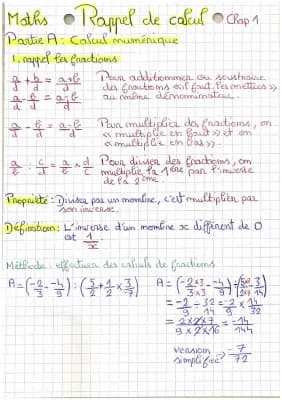 Maths ● Rappel de calcul ● Chap 1
Partie A : Calcul numérique
1. rappel les fractions
a/d + b/d = a+b/d Pour additionner ou soustraire
des fractions « il faut les mettre »
a/d - b/d = a-b/d au même dénominateur.
Pour multiplier des fractions, on
« multiplie en haut » et on
« multiplie en bas ».
a/b : c/d = a/b x d/c Pour diviser des fractions, on
multiplie la 1ère par l'inverse
de la 2ème
Propriété : Diviser par un nombre, c'est multiplier par
son inverse.
Définition : L'inverse d'un nombre x différent de 0
est 1/x.
Méthode : effectuer des calculs de fractions
A = (-2/3 - -4/9) : (5/2 + 1/2 x 3/7)
A = (-2x3/3x3 - -4/9) : (5x7/2x7 3/14)
= -2/9 : 32/14 = -2/9 x 14/32
= 2x2x7/9x2x16 = -14/144
version
simplifiée -7/72